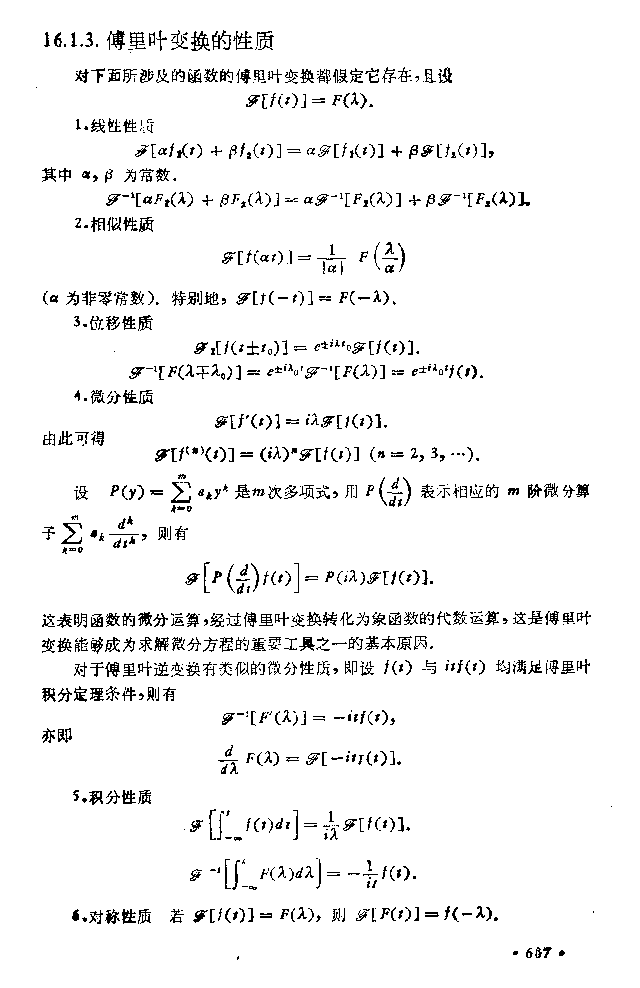 16.1.3. 傅里叶变换的性质
对下面所涉及的函数的傅里叶变换都假定它存在,且设
ℱ[f(t)] = F(λ).
1.线性性质
ℱ[αf₁(t) + βf₂(t)] = αℱ[f₁(t)] + βℱ[f₂(t)],
其中 α, β 为常数.
ℱ⁻¹[αF₁(λ) + βF₂(λ)] = αℱ⁻¹[F₁(λ)] + βℱ⁻¹[F₂(λ)].
2.相似性质
ℱ[f(αt)] = \frac{1}{|α|} F(\frac{λ}{α})
(α 为非零常数). 特别地, ℱ[f(−t)] = F(−λ).
3.位移性质
ℱ[f(t±t₀)] = e^{±iλt₀}ℱ[f(t)].
ℱ⁻¹[F(λ∓λ₀)] = e^{±iλ₀t}ℱ⁻¹[F(λ)] = e^{±iλ₀t}f(t).
4.微分性质
ℱ[f′(t)] = iλℱ[f(t)].
由此可得
ℱ[f⁽ⁿ⁾(t)] = (iλ)ⁿℱ[f(t)] (n = 2, 3, ⋯).
设 P(y) = \sum_{k=0}^{m} a_k y^k 是m次多项式, 用 P(\frac{d}{dt}) 表示相应的 m 阶微分算
子 \sum_{k=0}^{m} a_k \frac{d^k}{dt^k}, 则有
ℱ[P(\frac{d}{dt})f(t)] = P(iλ)ℱ[f(t)].
这表明函数的微分运算,经过傅里叶变换转化为象函数的代数运算,这是傅里叶
变换能够成为求解微分方程的重要工具之一的基本原因.
对于傅里叶逆变换有类似的微分性质,即设 f(t) 与 itf(t) 均满足傅里叶
积分定理条件,则有
ℱ⁻¹[F′(λ)] = −itf(t),
亦即
\frac{d}{dλ} F(λ) = ℱ[−itf(t)].
5.积分性质
ℱ[\int_{-∞}^{t} f(t)dt] = \frac{1}{iλ}ℱ[f(t)].
ℱ⁻¹[\int_{-∞}^{λ} F(λ)dλ] = −\frac{1}{it}f(t).
6.对称性质 若 ℱ[f(t)] = F(λ), 则 ℱ[F(t)] = f(−λ).
• 687 •